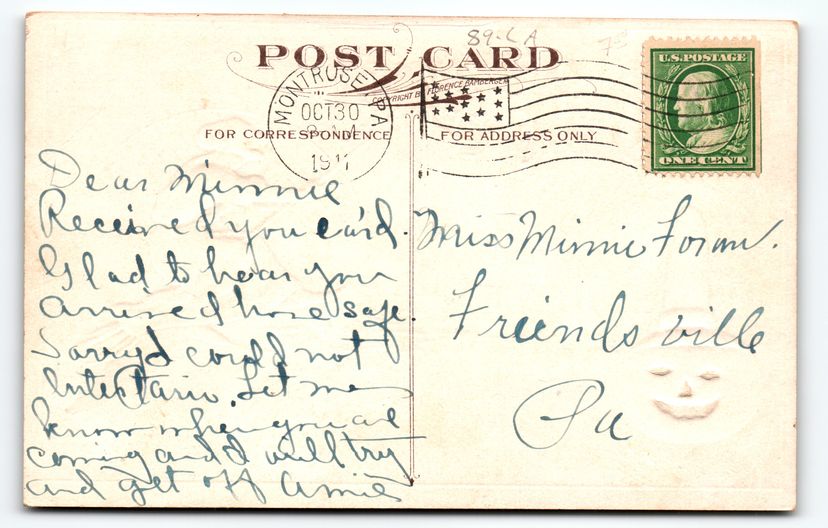 89-CA
POST CARD
COPYRIGHT BY FLORENCE BAMBERGER
U.S. POSTAGE
ONE CENT
MONTROSE, PA
OCT 30
1911
FOR CORRESPONDENCE
FOR ADDRESS ONLY
Dear Minnie
Received you card.
Glad to hear you
arrived home safe.
Sorry I could not
Intertain. Let me
know when you are
coming and I will try
and get off
Miss Minnie Foran.
Friendsville
Pa